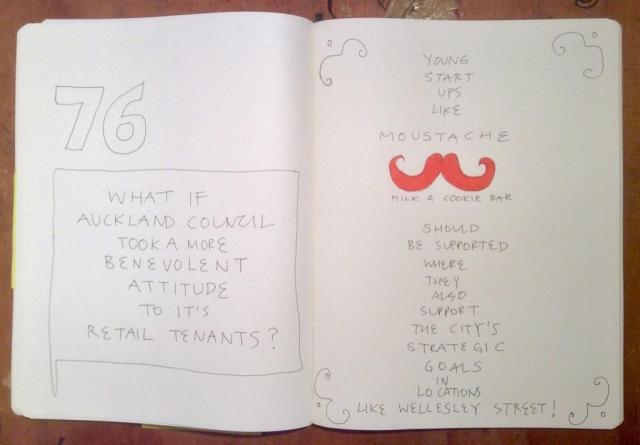 76
WHAT IF
AUCKLAND COUNCIL
TOOK A MORE
BENEVOLENT
ATTITUDE
TO IT'S
RETAIL TENANTS?
YOUNG
START
UPS
LIKE
MOUSTACHE
MILK & COOKIE BAR
SHOULD
BE SUPPORTED
WHERE
THEY
ALSO
SUPPORT
THE CITY'S
STRATEGIC
GOALS
IN
LOCATIONS
LIKE WELLESLEY STREET!